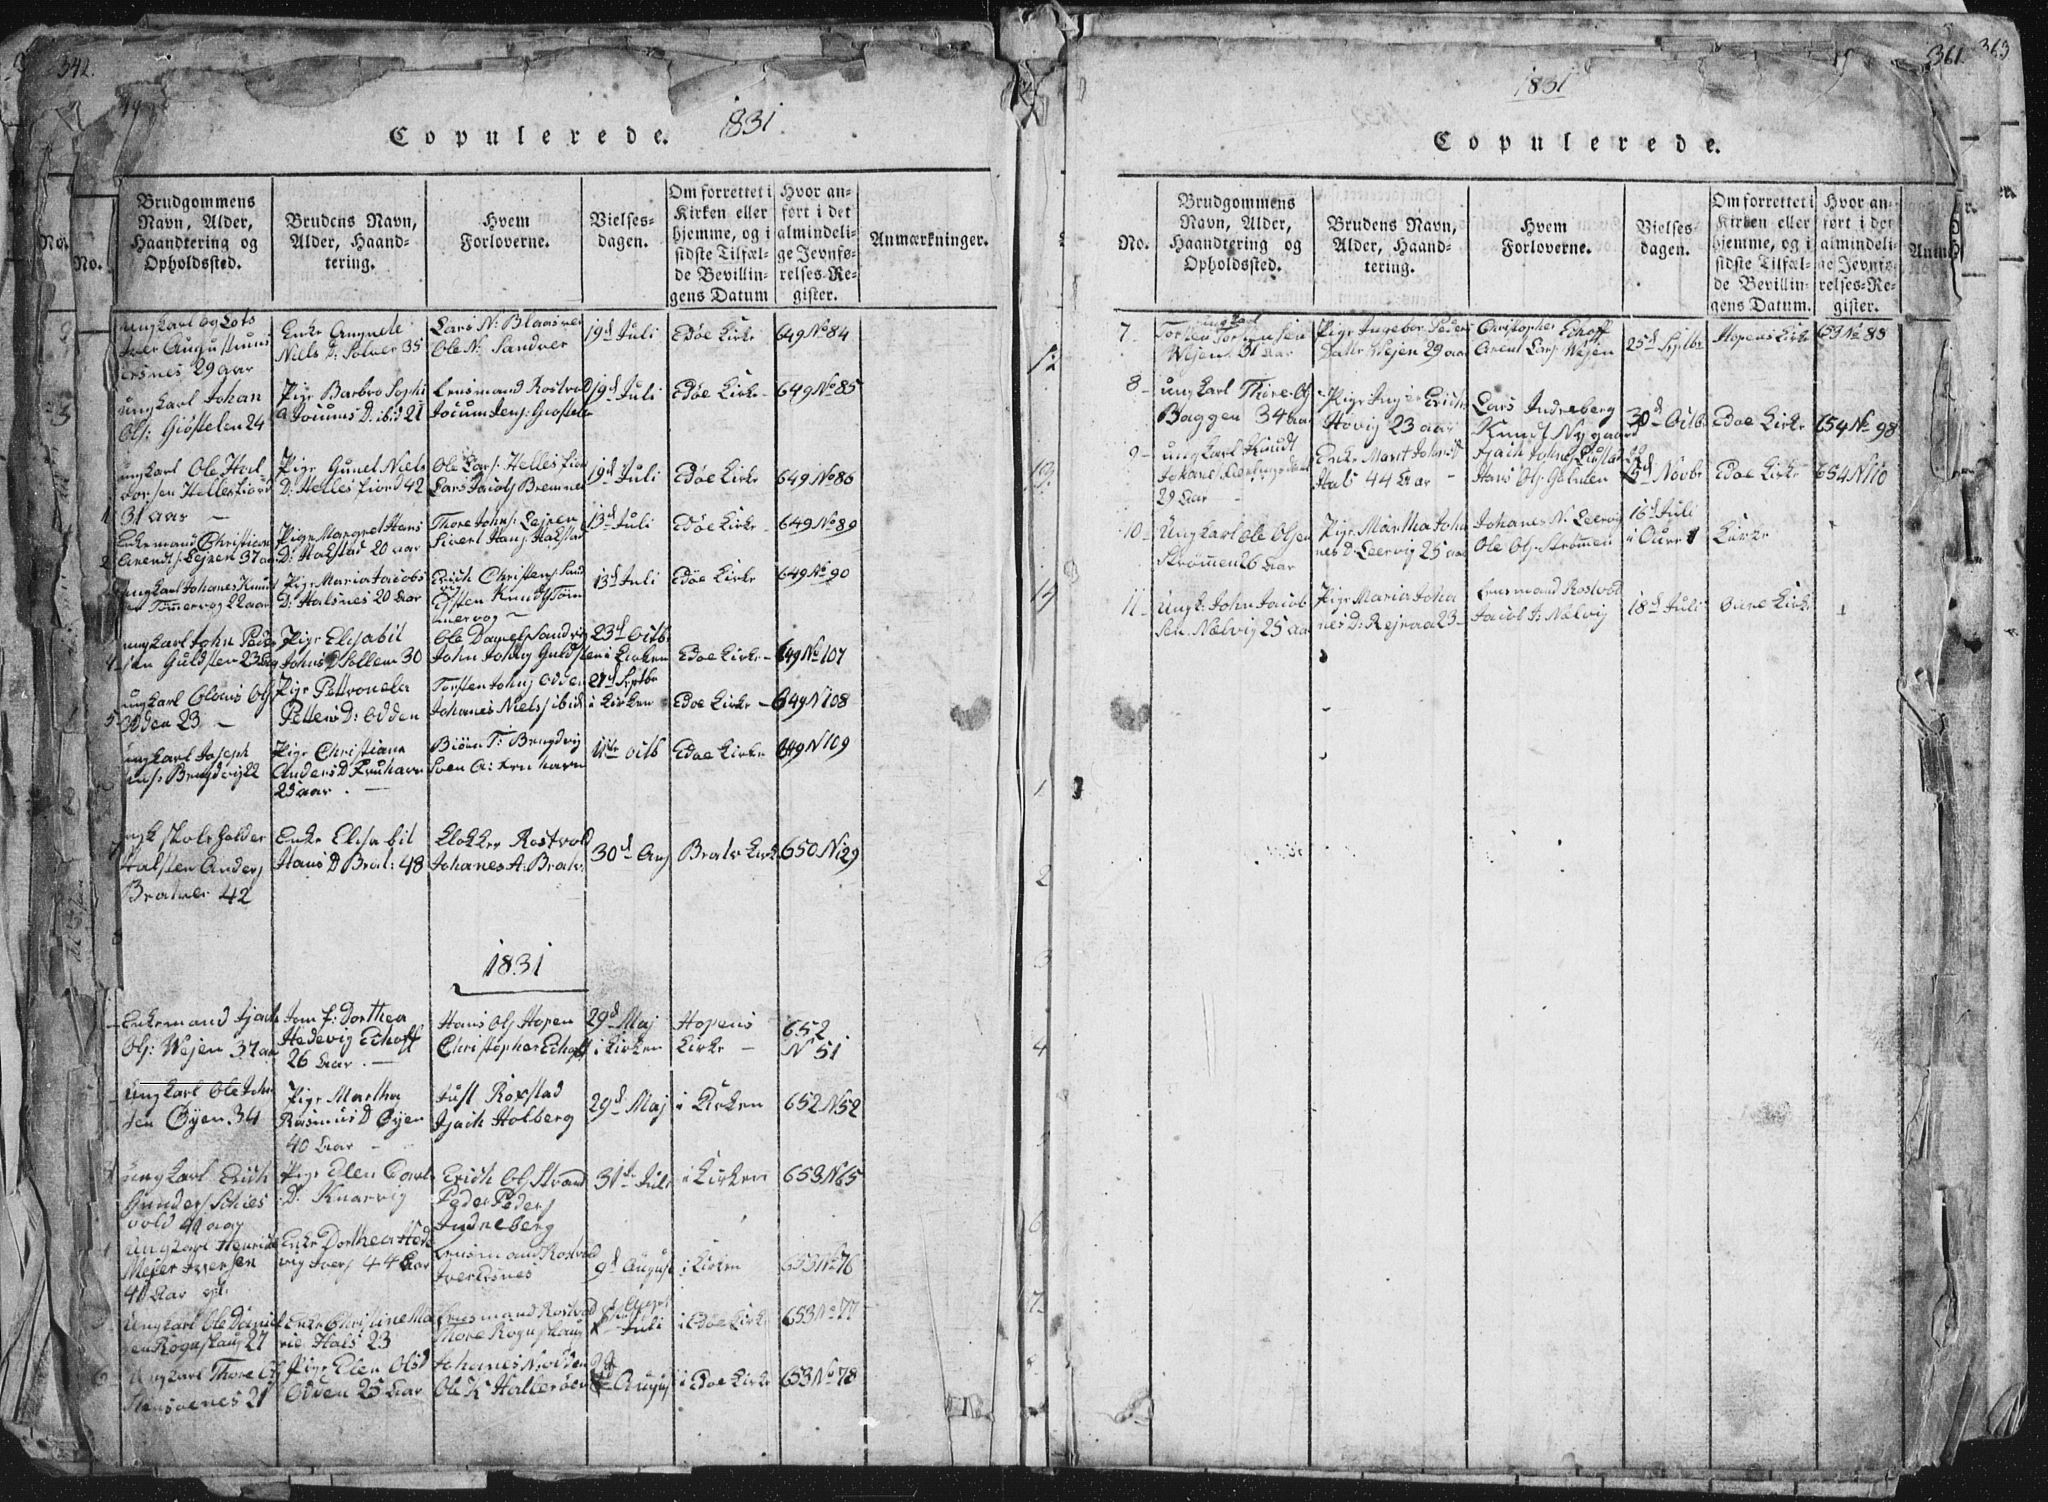 342.
Copulerede. 1831.
No.
No.
Brudgommens
Navn, Alder,
Haandtering og
Opholdssted.
Brudens Navn,
Alder, Haand-
tering.
Hvem
Forloverne.
Vielses-
dagen.
Om forrettet i
Kirken eller
hjemme, og i
sidste Tilfæl-
de Bevillin-
gens Datum
Hvor an-
ført i det
almindeli-
ge Jevnfø-
relses-Re-
gister.
Anmærkninger.
Ungkarl og Lots
Iver Augustinus
29 aar
Enke Angnete
Niels D: Solver 35
Lars N: Blaasver
Ole N: Sandver
19d Juli
Edöe Kirke
649 No 84
ungkarl Johan
Ols: Giöstelen 24
Pige Barbro Sophi
a Jocums D. ibid 21
Lensmand Rostvold
Jocum Jens: Giöstele
19d Juli
Edöe Kirke
649 No 85
ungkarl Ole Hal
dorsen Hellesfiord
31 aar
Pige Gunel Niels
D: Hellesfiord 42
Ole Lars: Hellesfior
Lars Jacobs Bremnes
19d Juli
Edöe Kirke
649 No 86
Enkemand Christian
Arendts: Lejren 37 aar
Pige Margret Hans
D: Halstad 20 aar
Thore Johns: Lejren
Sivert Hans: Halstad
13d Juli
Edöe Kirke
649 No 89
ungkarl Johanes Knud
sen Tömmervog 22 aar
Pige Maria Jacobs
D: Halsnes 20 aar
Erich Christens: Sand
Östen Knuds Töm
mervog
13d Juli
Edöe Kirke
649 No 90
ungkarl John Peder
sen Guldsten 23 aar
Pige Elisabit
Johns D Sollem 30
Ole Daniels Sandvig
John Johns Guldsten
23d Octb
i Kirken
Edoe Kirke
649 No 107
ungkarl Olaus Ols
Odden 23
Pige Petronela
Petters D: Odden
Torsten Johns Odden
Johanes Niels: ibid
21d Septbr
i Kirken
Edoe Kirke
649 N 108
ungkarl Joseph
Bengdvig 22
Pige Christiana
Anders D Kruhavn
25 aar
Biörn T: Bengdvig
Sven A: Kruhavn
11te Octb
Edoe Kirke
649 N 109
ungk Skoleholder
Halsten Anders
Bratver 42
Enke Elisabit
Hans D Brat: 48
Klokker Rostvold
Johanes A: Bratv:
30d Aug
Bratv Kirk
650 N 29
1831
Enkemand Isach
Ols: Wejen 37 aar
Jomf: Dorthea
Hedevig Echoff
26 aar
Hans Ols Hopen
Christopher Echoff
29d Maj
i Kirken
Hopens
Kirke
652
No 51
Ungkarl Ole John
sen Öyen 34
Pige Martha
Rasmus D Öyen
40 aar
Just Roxstad
Isach Holberg
29d Maj
i Kirken
652 N 52
ungkarl Erich
Gunders Schies
vold 41 aar
Pige Elen
D: Knarvig
Erich Ols Strand
Peder Peders
Indreberg
31te Juli
i Kirken
653 N 65
Ungkarl Henrich
Mejer Iversen
40 aar
Enke Dorthea Hede
vig Ivers 44 aar
Lensmand Rostvold
9d August
i Kirken
653 No 76
Ungkarl Ole Daniel
sen Rognskaug 27
Enke Christine Ma
rie Hals 23
Lensmand Rostvold
Thore Rognskaug
Juli
i Edöe Kirke
653 No 77
Ungkarl Thore Ols
21
Pige Elen Ols D
Odden 25 aar
Johanes N: Odden
Ole K Halleröen
August
i Edoe Kirke
653 No 78
361.
363
1831
Copulerede.
No.
Brudgommens
Navn, Alder,
Haandtering og
Opholdssted.
Brudens Navn,
Alder, Haand-
tering.
Hvem
Forloverne.
Vielses-
dagen.
Om forrettet i
Kirken eller
hjemme, og i
sidste Tilfæl-
de Bevillin-
gens Datum.
Hvor an-
ført i det
almindeli-
ge Jevnfø-
relses-Re-
gister.
Anm
7
ungkarl
Torsten Torstensen
Wejen 31 aar
Pige Ingebor Peders
Datter Wejen 29 aar
Christopher Echoff
Arent Lars: Wejen
25d Septbr
Hopens Kirke
653 No 88
8
ungkarl Thore Ols
Baggen 34 aar
Pige Inger Erichs
Hövig 23 aar
Lars Indreberg
Knudt Nygaard
30d Octb
Edoe Kirke
654 No 98
9
ungkarl Knudt
29 aar
Enke Marit Johns D
Hals 44 aar
Isach Johns
Hans Ols:
Novbr
Edoe Kirke
654 N 110
10
Ungkarl Ole Olsen
Strömmen 26 aar
Pige Martha Joha
nes D: Leervig 25 aar
Johanes N: Leervig
Ole Ols: Strömmen
16d Juli
i Oure
Kirke
11
Ungk: John Jacob
sen Nælvig 25 aar
Pige Maria Joha
nes D: Rejraa 23
Lensmand Rostvold
Jacob J: Nælvig
18d Juli
Oure Kirke